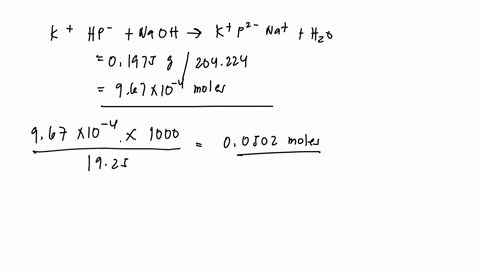 K⁺ HP⁻ + NaOH → K⁺ P²⁻ Na⁺ + H₂O
= 0.1975 g / 204.224
= 9.67 × 10⁻⁴ moles
9.67 × 10⁻⁴ × 1000 / 19.25 = 0.0502 moles